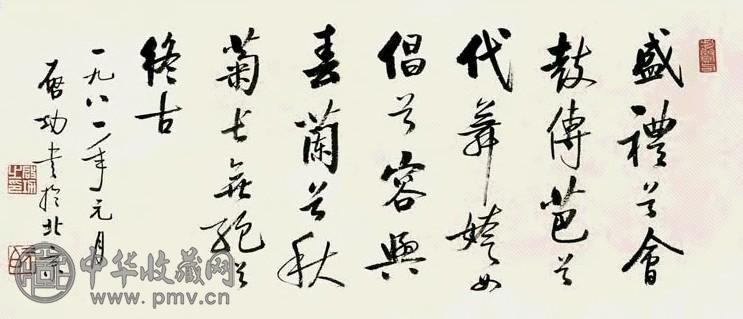 盛禮兮會
鼓傳芭兮
代舞姱女
倡兮容與
春蘭兮秋
菊長無絕兮
終古
一九八一年元月
啓功書於北京
中华收藏网
www.pmv.cn